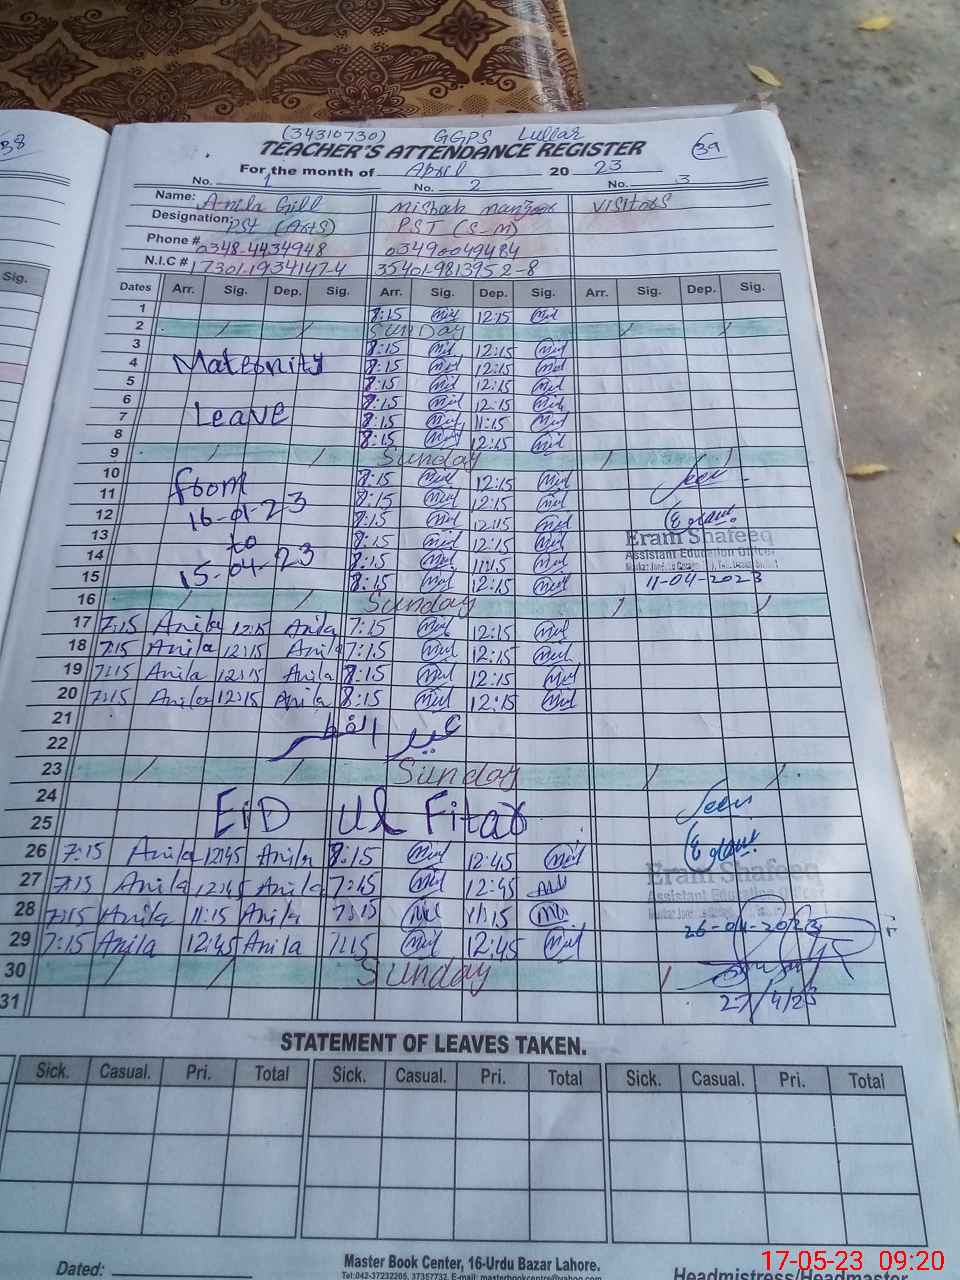 38
(34310730) GGPS Lullar
TEACHER'S ATTENDANCE REGISTER 39
For the month of April 2023
No. 1 No. 2 No. 3
Name: Anila Gill Misbah Manzoor Visitors
Designation: PST (Arts) PST (S-M)
Phone # 0348-4434948 03490049484
N.I.C # 17301-1934147-4 35401-9813952-8
Sig.
Dates Arr. Sig. Dep. Sig. Arr. Sig. Dep. Sig. Arr. Sig. Dep. Sig.
1 8:15 12:15
2 Sunday
3 8:15 12:15
4 Maternity 8:15 12:15
5 8:15 12:15
6 8:15 12:15
7 Leave 8:15 11:15
8 8:15 12:15
9 Sunday
10 8:15 12:15 Seen
11 from 8:15 12:15
12 16-01-23 8:15 12:15
13 to 8:15 12:15 Eram Shafeeq
14 8:15 11:15 Assistant Education Officer
15 15-04-23 8:15 12:15 11-04-2023
16 Sunday
17 7:15 Anila 12:15 Anila 7:15 12:15
18 7:15 Anila 12:15 Anila 7:15 12:15
19 7:15 Anila 12:15 Anila 8:15 12:15
20 7:15 Anila 12:15 Anila 8:15 12:15
21 عید الفطر
22
23 Sunday
24 Seen
25 EiD Ul Fitar
26 7:15 Anila 12:45 Anila 8:15 12:45 Eram Shafeeq
27 7:15 Anila 12:45 Anila 7:45 12:45 Assistant Education Officer
28 7:15 Anila 11:15 Anila 7:15 11:15 26-04-2023
29 7:15 Anila 12:45 Anila 7:15 12:45
30 Sunday
31 27/4/23
STATEMENT OF LEAVES TAKEN.
Sick. Casual. Pri. Total Sick. Casual. Pri. Total Sick. Casual. Pri. Total
Dated: Master Book Center, 16-Urdu Bazar Lahore.
Tel:042-37232205, 37357732, E-mail: masterbookcentre@yahoo.com
Headmistress/Headmaster
17-05-23 09:20